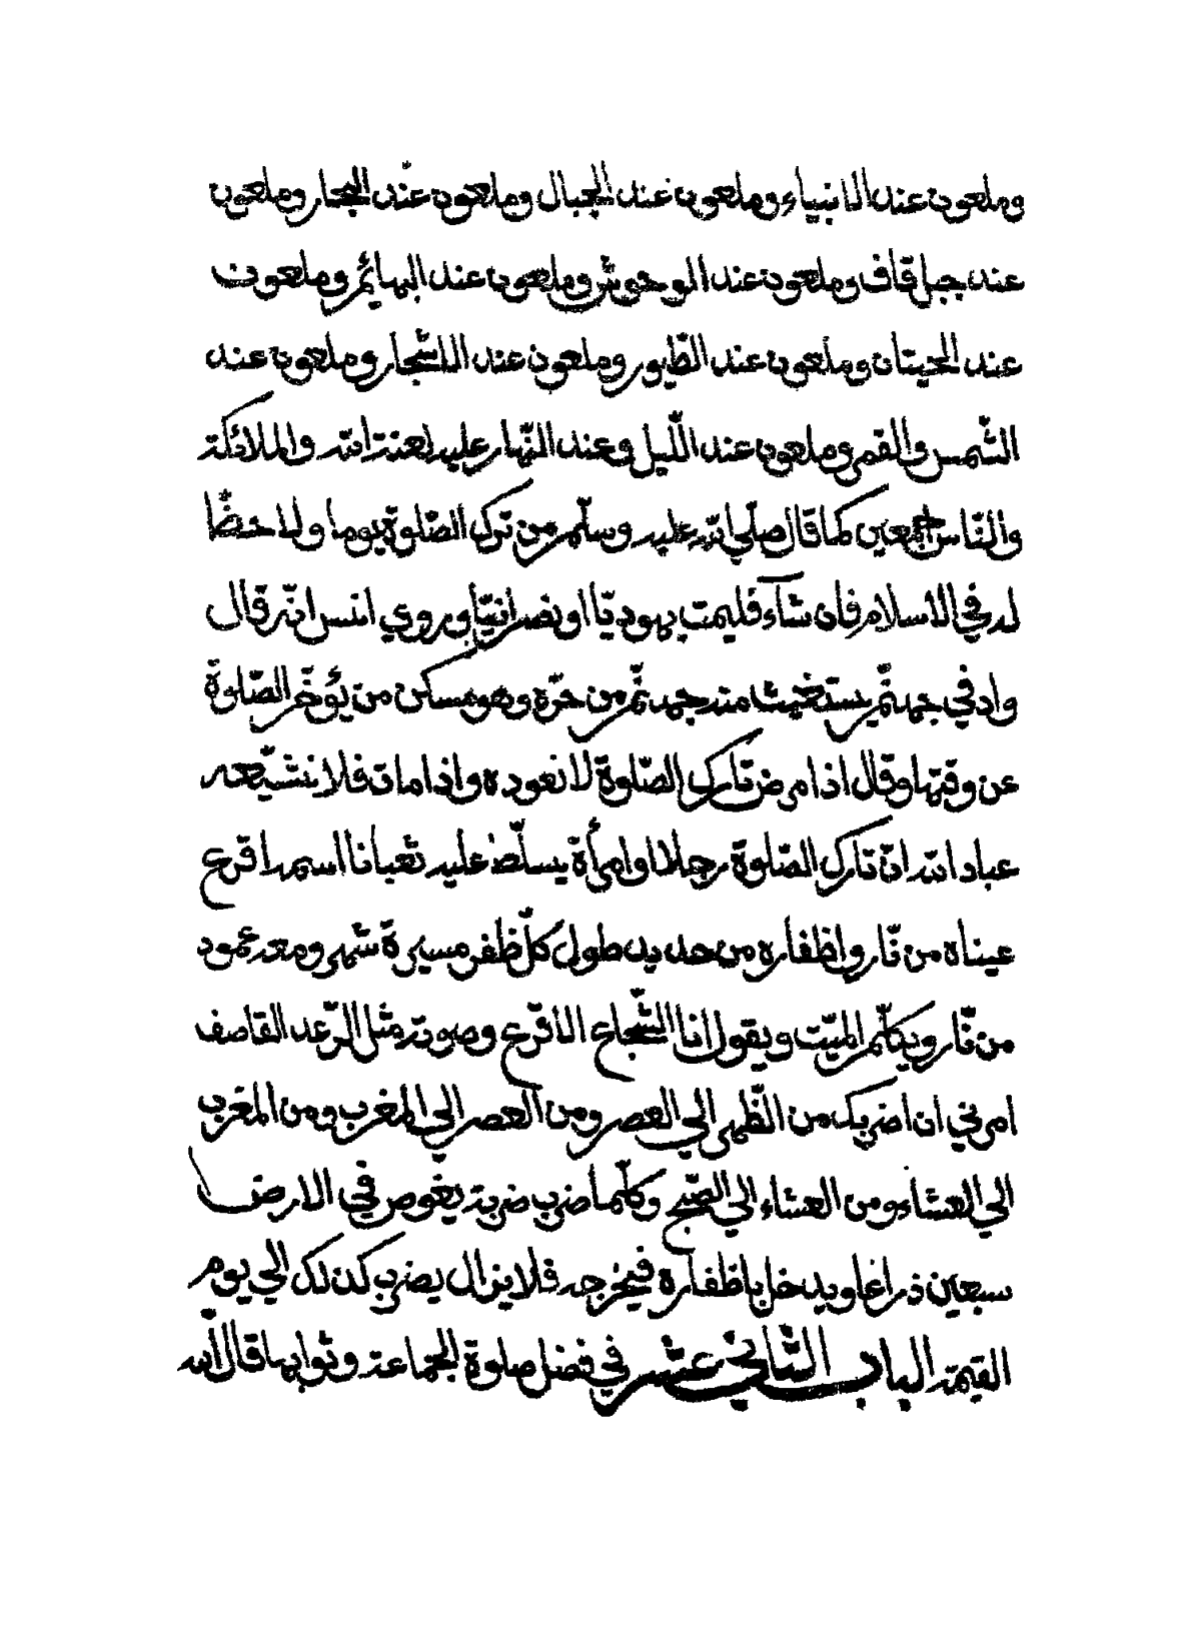 وملعون عند الانبياء وملعون عند الجبال وملعون عند البحار وملعون
عند جبل قاف وملعون عند الوحوش وملعون عند البهائم وملعون
عند الحيتان وملعون عند الطّيور وملعون عند الاشجار وملعون عند
الشّمس والقمر وملعون عند اللّيل وعند النّهار عليه لعنة الله والملائكة
والنّاس اجمعين كما قال صلّي الله عليه وسلّم من ترك الصّلوة يوما ولا حضّا
له في الاسلام فان شآء فليمت يهوديّا او نصرانيّا وروي انس انّه قال
واد في جهنّم يستغيث منه جهنّم من حرّه وهو مسكن من يؤخّر الصّلوة
عن وقتها وقال اذا مرض تارك الصّلوة لا نعوده واذا مات فلا نشيّعه
عباد الله انّ تارك الصّلوة رجلا او امرأة يسلّط عليه ثعبانا اسمه اقرع
عيناه من نّار واظفاره من حديد طول كلّ ظفر مسيرة شهر ومعه عمود
من نّار ويكلّم الميّت ويقول انا الشّجاع الاقرع وصوته مثل الرّعد القاصف
امرني ان اضربك من الظّهر الي العصر ومن العصر الي المغرب ومن المغرب
الي العشاء ومن العشاء الي الصّبح وكلّما ضرب ضربة يغوص في الارض
سبعين ذراعا ويدخل باظفاره فيخرجه فلا يزال يضرب كذلك الي يوم
القيمة الباب الثّاني عشر في فضل صلوة الجماعة وثوابها قال الله